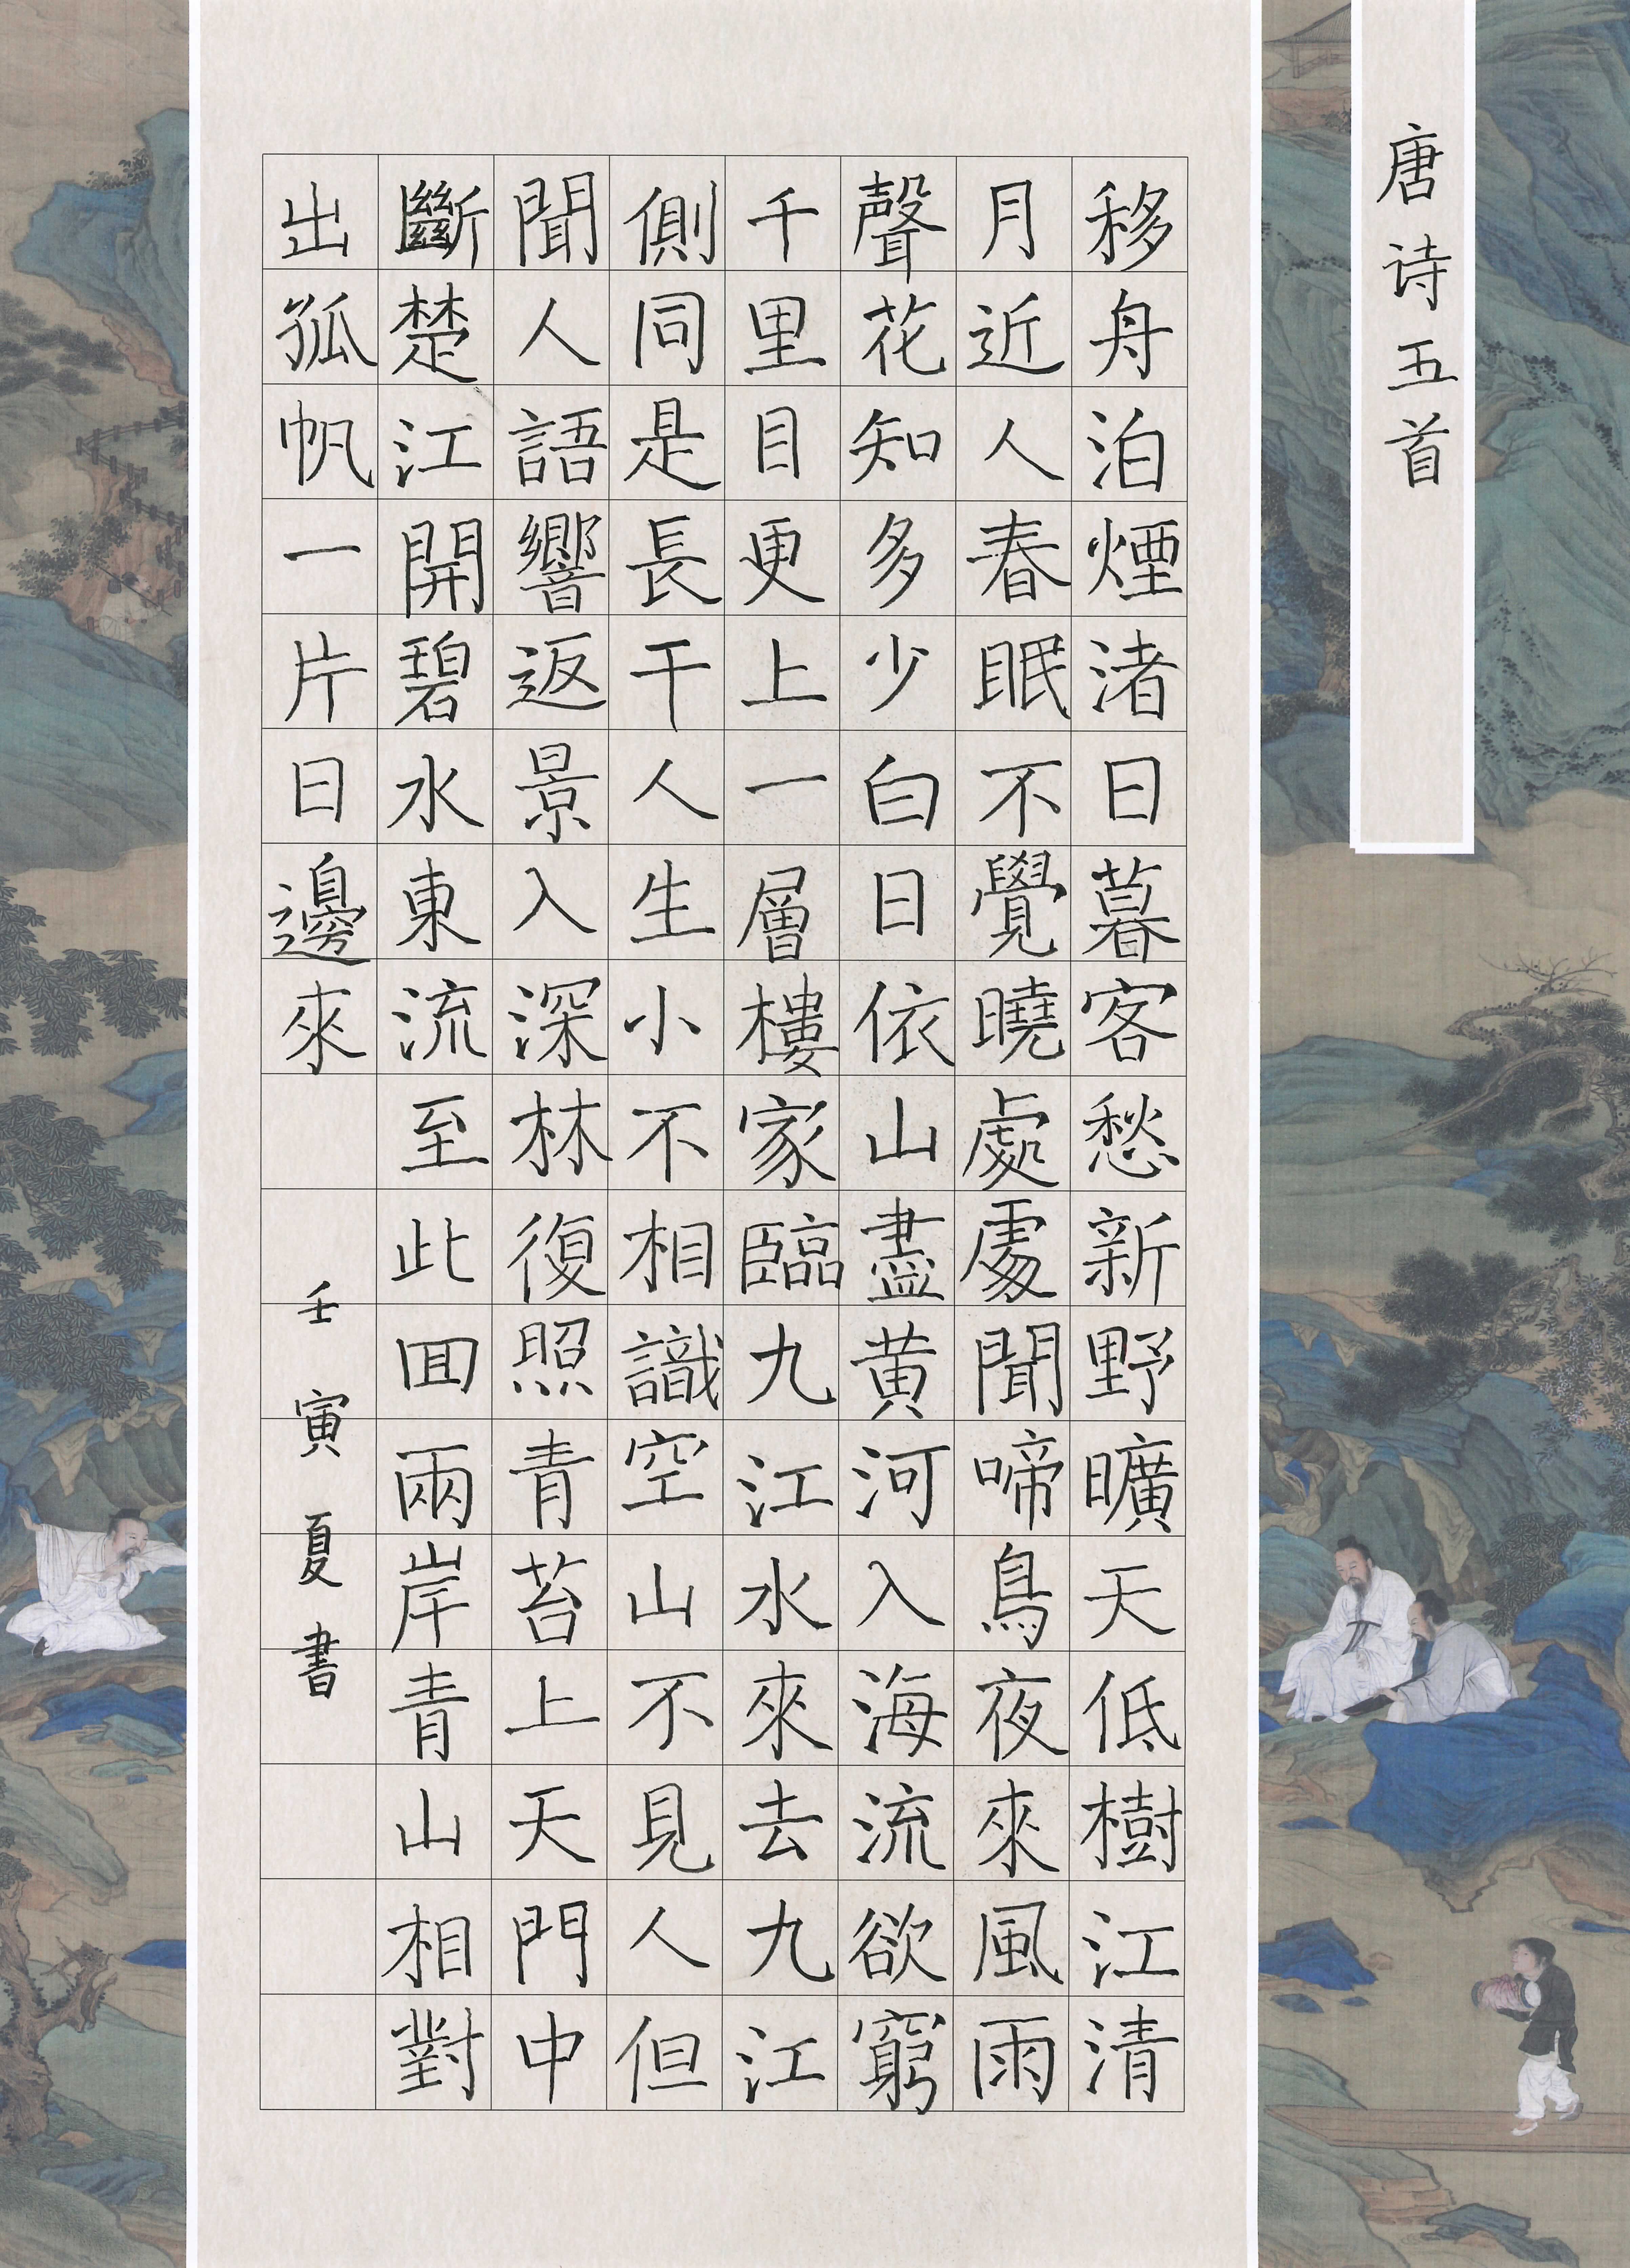 唐诗五首
移舟泊煙渚日暮客愁新野曠天低樹江清
月近人春眠不覺曉處處聞啼鳥夜來風雨
聲花知多少白日依山盡黄河入海流欲窮
千里目更上一層樓家臨九江水來去九江
側同是長干人生小不相識空山不見人但
聞人語響返景入深林復照青苔上天門中
斷楚江開碧水東流至此囬兩岸青山相對
出孤帆一片日邊來
壬寅夏書